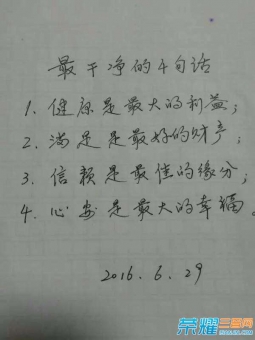 最干净的4句话
1. 健康是最大的利益;
2. 满足是最好的财产;
3. 信赖是最佳的缘分;
4. 心安是最大的幸福。
2016.6.29
荣耀